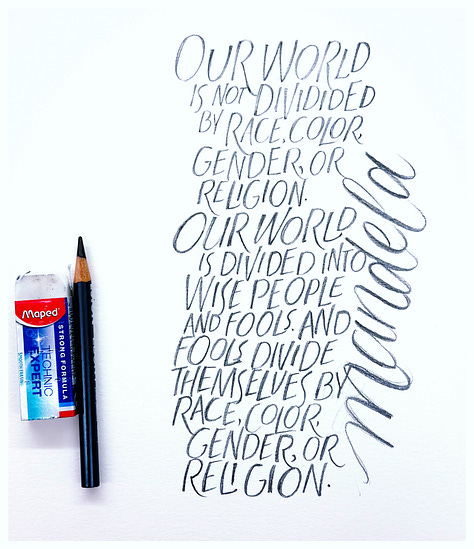 OUR WORLD
IS NOT DIVIDIDED
BY RACE, COLOR,
GENDER, OR
RELIGION.
OUR WORLD
IS DIVIDED INTO
WISE PEOPLE
AND FOOLS. AND
FOOLS DIVIDE
THEMSELVES BY
RACE, COLOR,
GENDER, OR
RELIGION.
mandela
Maped
STRONG FORMULA
TECHNIC
EXPERT